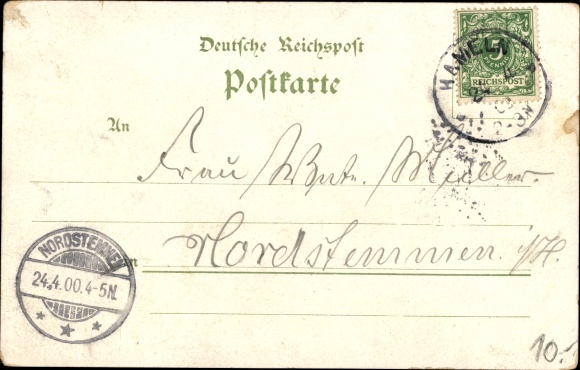 Deutsche Reichspost
Postkarte
5
PFENNIG
REICHSPOST
HAMELN
An
Frau Müller.
Nordstemmen
in
NORDSTEMMEN
24.4.00.4-5N.
10.-